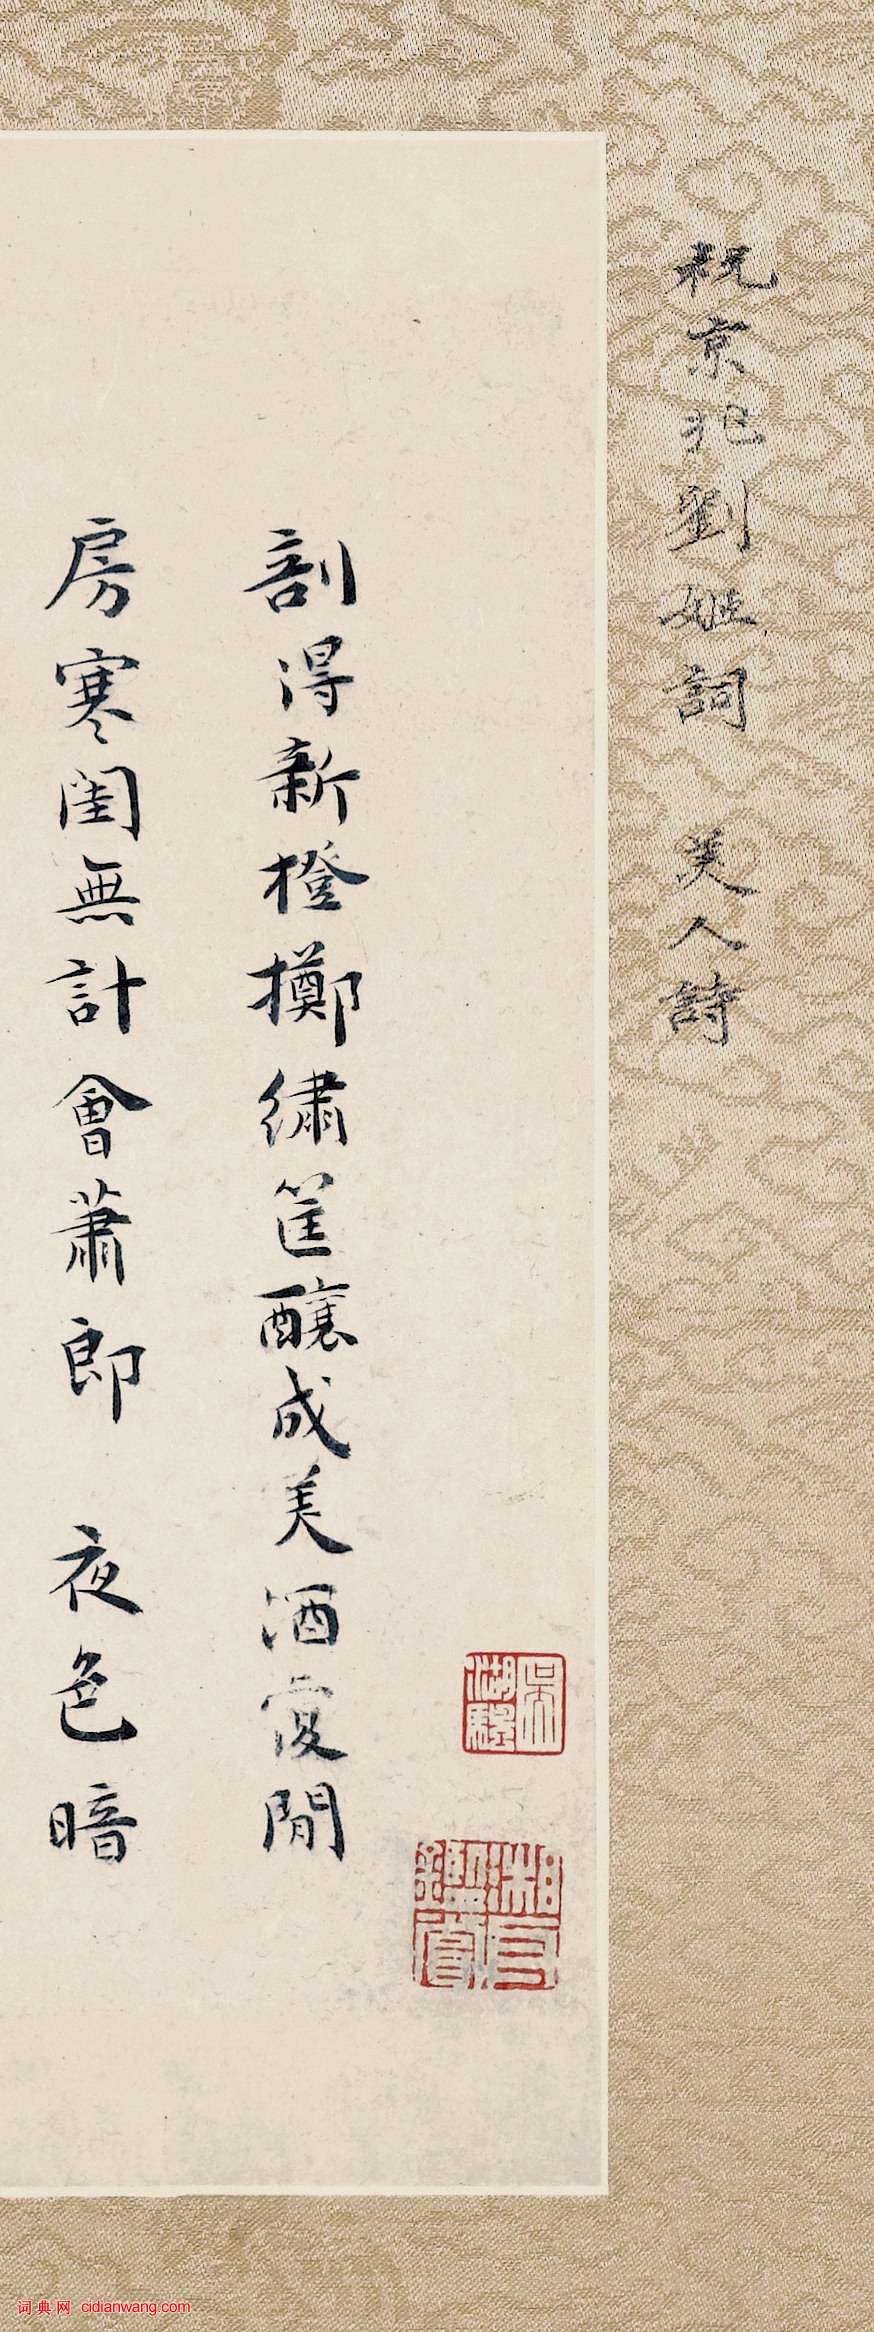 祝京兆劉姬詞 美人詩
吳湖驄
湘舟鑑賞
剖得新橙擲繡筐釀成美酒復閒
房寒閨無計會蕭郎 夜色暗
词典网 cidianwang.com